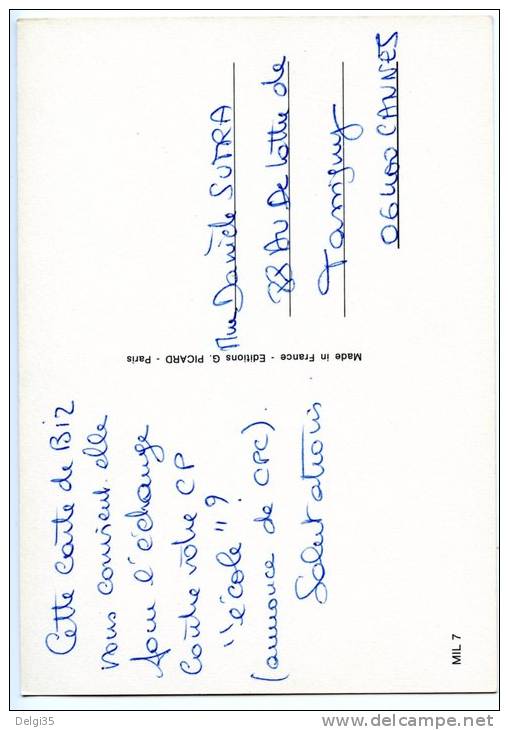 Cette carte de Biz
vous convient-elle
pour l'échange
contre votre CP
"école"?
(annonce de CPC).
Salutations
Made in France - Editions G. PICARD - Paris
Mme Danièle SUTRA
88 AV De lattre de
Tassigny
06400 CANNES
MIL 7
Delgi35
www.delcampe.net